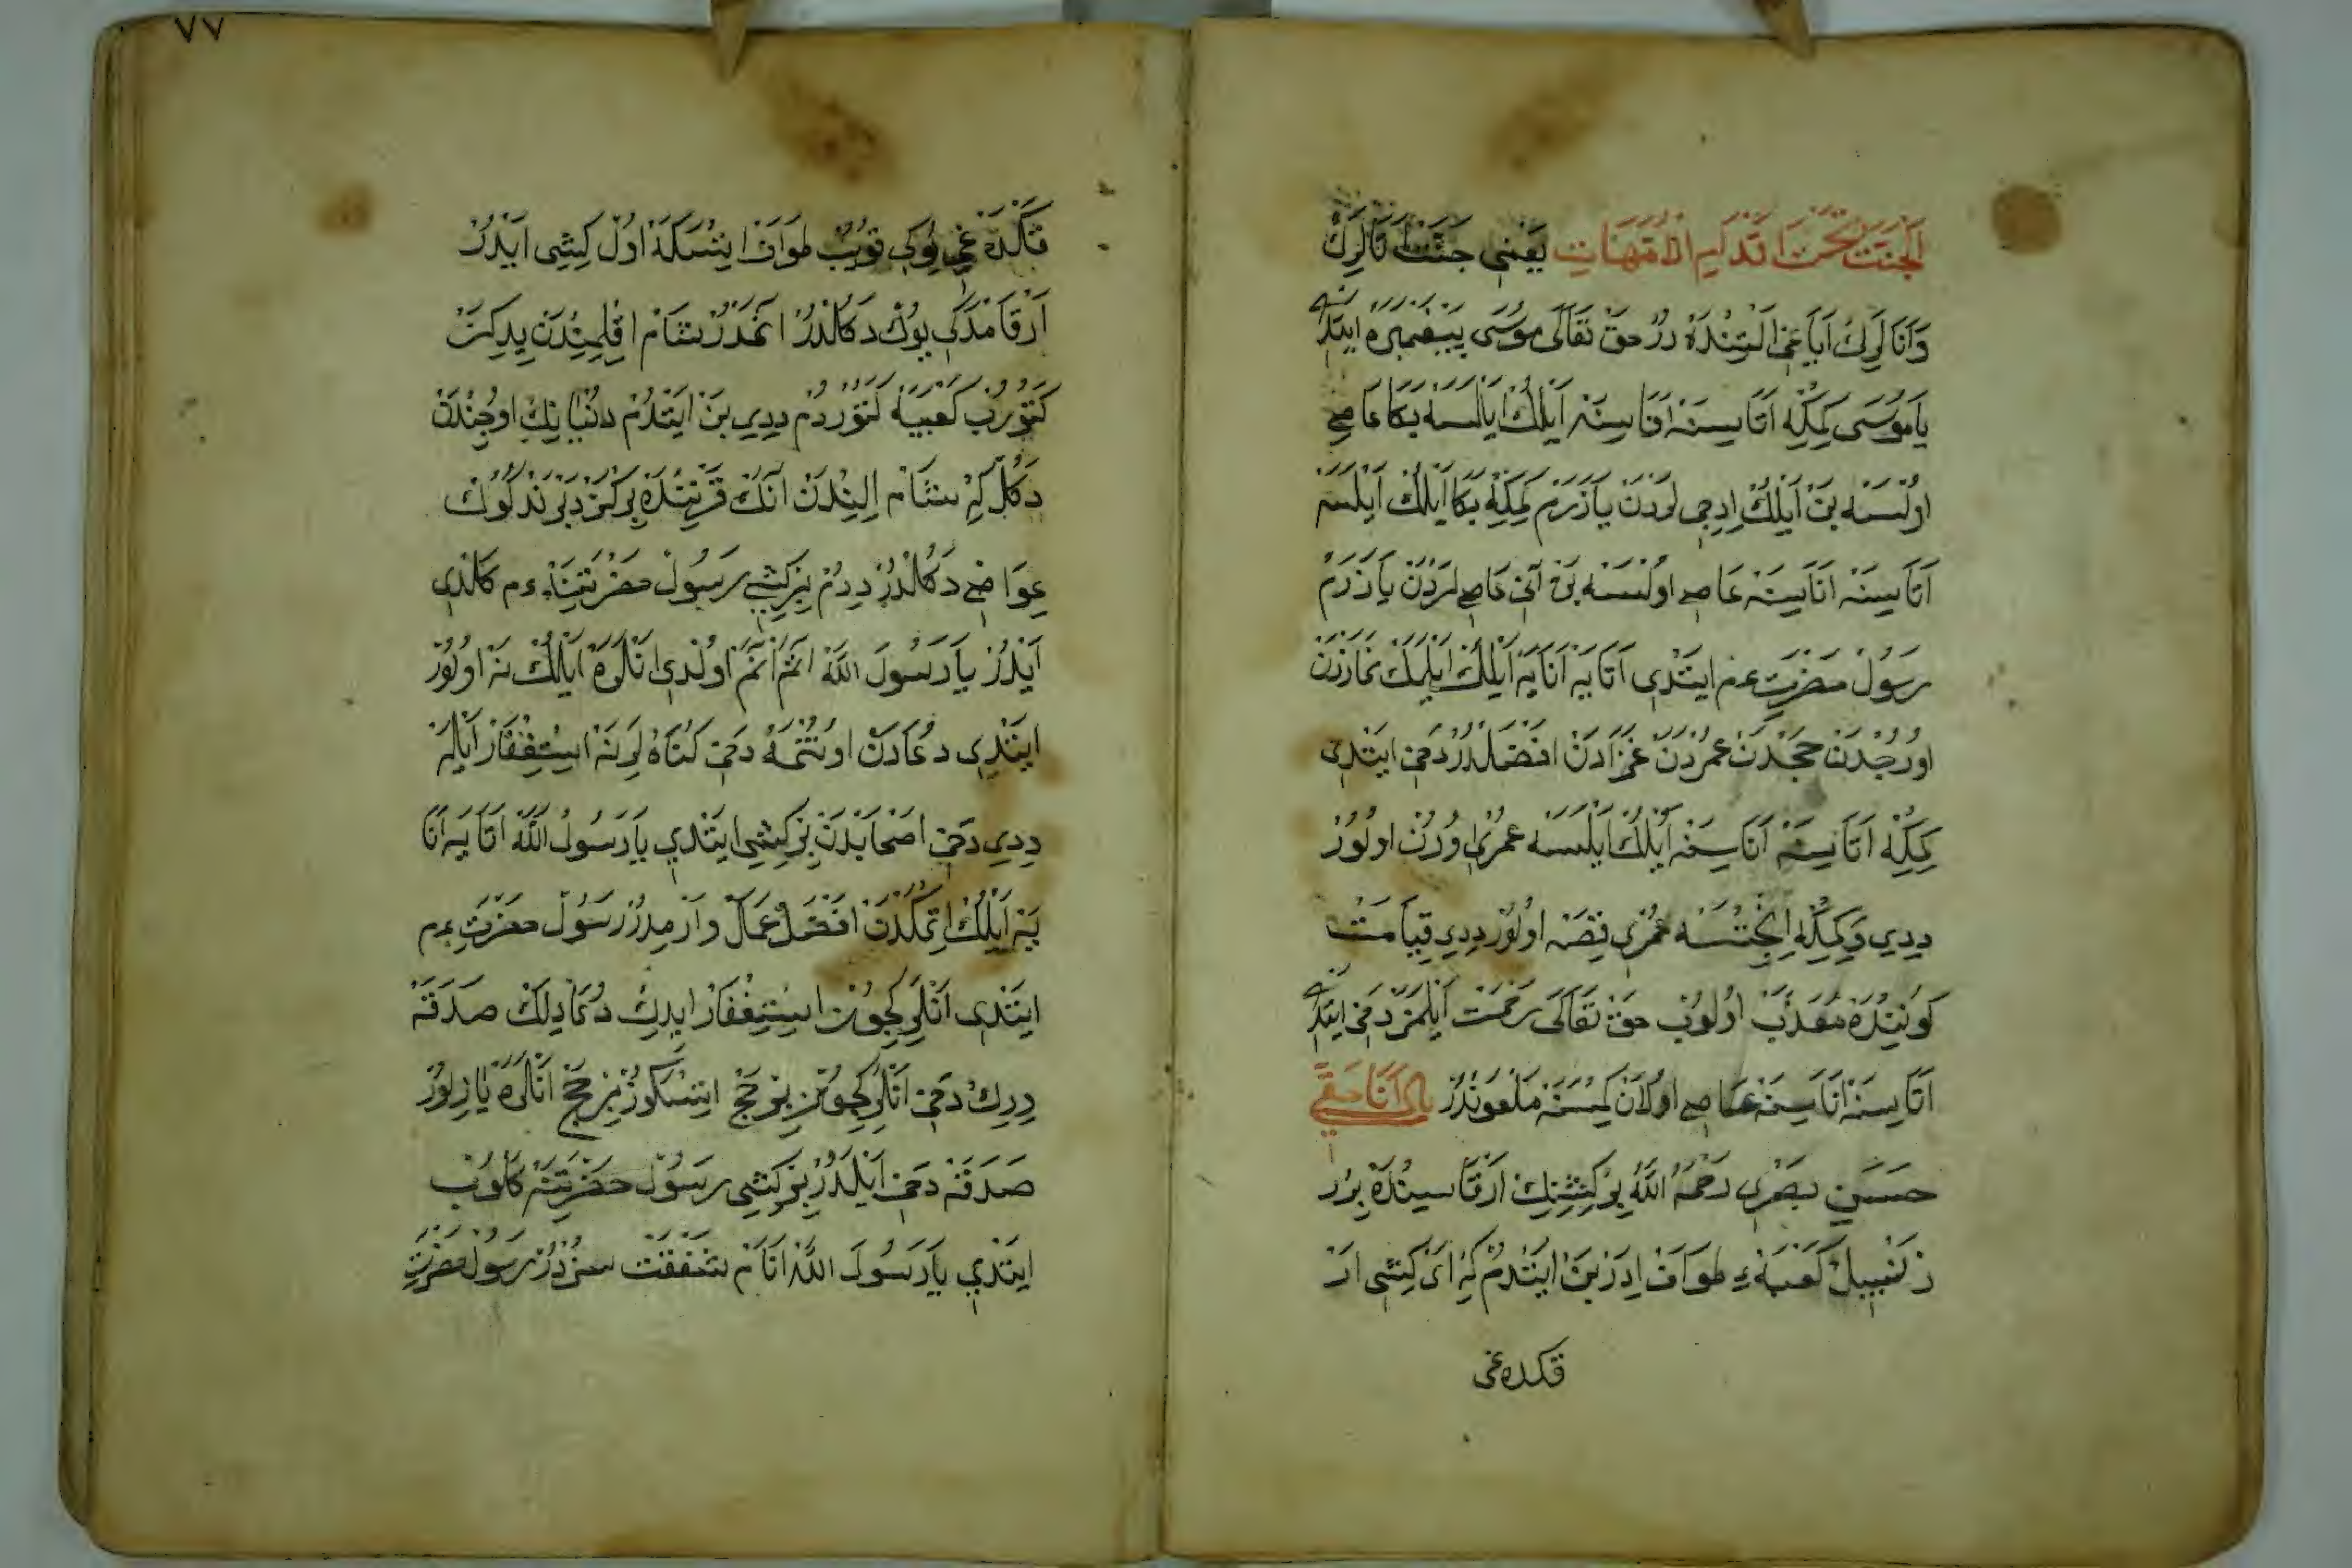 اَلْجَنَّتُ تَحْتَ اَقْدَامِ الْاُمَّهَاتِ يَعْنِى جَنَّتْ اَتَالَرِكْ
وَاَنَالَرِكْ اَيَاغِى اَلْتِنْدَهْ دُرْ حَقْ تَعَالَى مُوسَى پَيْغَمْبَرَهْ ايتدى
يَا مُوسَى كِمْكِه اَتَاسِنَهْ اَنَاسِنَهْ اَيُلِكْ اَيْلَسَه بَكَا عَاصِى
اوُلْسَه بَنْ اَيُلِكْ اِدِجِى لَرْدَنْ يَازَرَمْ كِمْكِه بَكَا اَيُلِكْ اَيْلَسَه
اَتَاسِنَهْ اَنَاسِنَهْ عَاصِى اوُلْسَه بَنْ اَنِى عَاصِى لَرْدَنْ يَازَرَمْ
رَسُولْ حَضْرَتِ عم ايتْدِى اَتَايَهْ اَنَايَهْ اَيُلِكْ اَيْلَمَكْ نَمَازْدَنْ
اوُرُجْدَنْ حَجْدَنْ عُمْرَدَنْ غَزَادَنْ اَفْضَلْدُرْ دَخِى ايتْدِى
كِمْكِه اَتَاسِنَهْ اَنَاسِنَهْ اَيُلِكْ اَيْلَسَه عُمْرِى اوُزُنْ اوُلُورْ
دِدِى وَكِمْكِه اِنْجِتْسَه عُمْرِى قِصَهْ اوُلُورْ دِدِى قِيَامَتْ
كُونِنْدَهْ مُعَذَّبْ اوُلُوبْ حَقْ تَعَالَى رَحْمَتْ اَيْلَمَزْ دَخِى ايتدى
اَتَاسِنَهْ اَنَاسِنَهْ عَاصِى اوُلَانْ كِمْسَنَهْ مَلْعُونْدُرْ اَنَا حَقِّى
حَسَنِ بَصْرِى رَحْمَهُ اللَّهْ بِرْ كِشِنِكْ اَرْقَاسِنْدَهْ بِرْ
زَنْبِيلْ كَعْبَهءِ طَوَافْ اِدَرْ بَنْ ايتْدُمْ كِهْ اَىْ كِشِى اَرْ
قكده غى
٧٧
قَكْدَهْ غِى يُوكِى قُويُبْ طَوَافْ ايتْسَكَهْ اوُلْ كِشِى ايدُرْ
اَرْقَامْدَكِى يُوكْ دَكُلْدُرْ اَتَمْدُرْ شَامْ اِقْلِمِنْدَنْ يِدِ كَزْ
كَتُورُبْ كَعْبَيَه كَتُورْدُمْ دِدِى بَنْ ايتْدُمْ دُنْيَانِكْ اوُجِنْدَنْ
دَكُلْ كِهْ شَامْ اِلِنْدَنْ
عِوَاضِى دَكُلْدُرْ دِدُمْ بِرْ كِشِى رَسُولْ حَضْرَتِنَهْ عم كَلْدِى
اَيْدُرْ يَا رَسُولَ اللَّهْ اَتَمْ اَنَمْ اوُلْدِى اَنْلَرَهْ اَيُلِكْ نَهْ اوُلُورْ
ايتْدِى دُعَادَنْ اوُنُتْمَهْ دَخِى كُنَاهْ لَرِنَهْ اِسْتِغْفَارْ اَيْلَهْ
دِدِى دَخِى اَصْحَابْدَنْ بِرْ كِشِى ايتْدِى يَا رَسُولُ اللَّهْ اَتَايَهْ اَنَا
يَهْ اَيُلِكْ اِتْمَكْدَنْ اَفْضَلْ عَمَلْ وَارْمِدُرْ رَسُولْ حَضْرَتِ عم
ايتْدِى اَنْلَرِكْجُونْ اِسْتِغْفَارْ ايدِكْ دُعَا دِلِكْ صَدَقَهْ
وِرِكْ دَخِى اَنْلَرِكْجُونْ بِرْ حَجْ ايتْسَكُوزْ بِرْ حَجْ اَنْلَرَهْ يَازِلُورْ
صَدَقَهْ دَخِى اَيْلَدُرْ بِرْ كِشِى رَسُولْ حَضْرَتِنَهْ كَلُوبْ
ايتْدِى يَا رَسُولَ اللَّهْ اَنَامْ شَفَقَتْ سِزْدُرْ رَسُولْ حَضْرَتِ